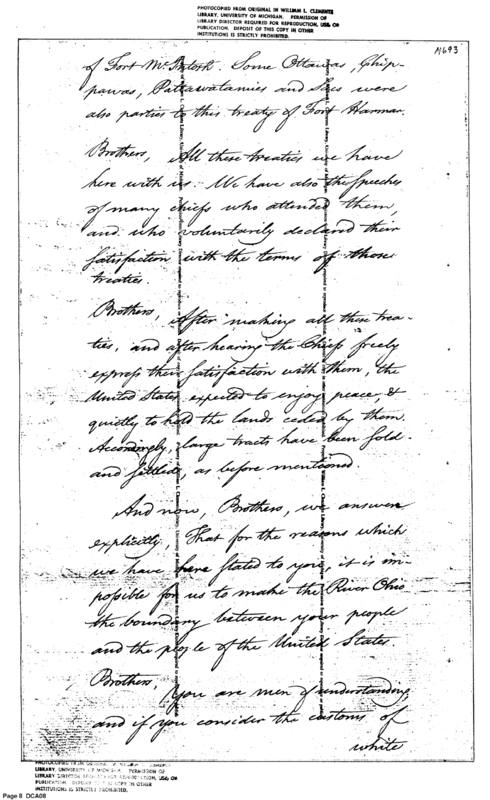 PHOTOCOPIED FROM ORIGINAL IN WILLIAM L. CLEMENTS
LIBRARY, UNIVERSITY OF MICHIGAN. PERMISSION OF
LIBRARY DIRECTOR REQUIRED FOR REPRODUCTION, USE OR
PUBLICATION. DEPOSIT OF THIS COPY IN OTHER
INSTITUTIONS IS STRICTLY PROHIBITED.
of Fort McIntosh. Some Ottawas, Chip-
pawas, Pattawatamies and Sacs were
also parties to this treaty of Fort Harmar.
Brothers, All these treaties we have
here with us. We have also the Speeches
of many chiefs who attended them,
and who voluntarily declared their
Satisfaction with the terms of those
treaties.
Brothers, After making all these trea-
ties, and after hearing the Chiefs freely
express their Satisfaction with them, the
United States expected to enjoy peace, &
quietly to hold the lands ceded by them.
Accordingly, large tracts have been Sold
and Settled, as before mentioned
And now, Brothers, we answer
explicitly, That for the reasons which
we have here Stated to you, it is im-
possible for us to make the River Ohio
the boundary between your people
and the people of the United States.
Brothers,
You are men of understanding,
and if you consider the customs of
white
PHOTOCOPIED FROM
LIBRARY, UNIVERSITY OF MICHIGAN. PERMISSION OF
LIBRARY DIRECTOR REQUIRED FOR REPRODUCTION, USE OR
PUBLICATION. DEPOSIT OF THIS COPY IN OTHER
INSTITUTIONS IS STRICTLY PROHIBITED.
Page 8 DCA08